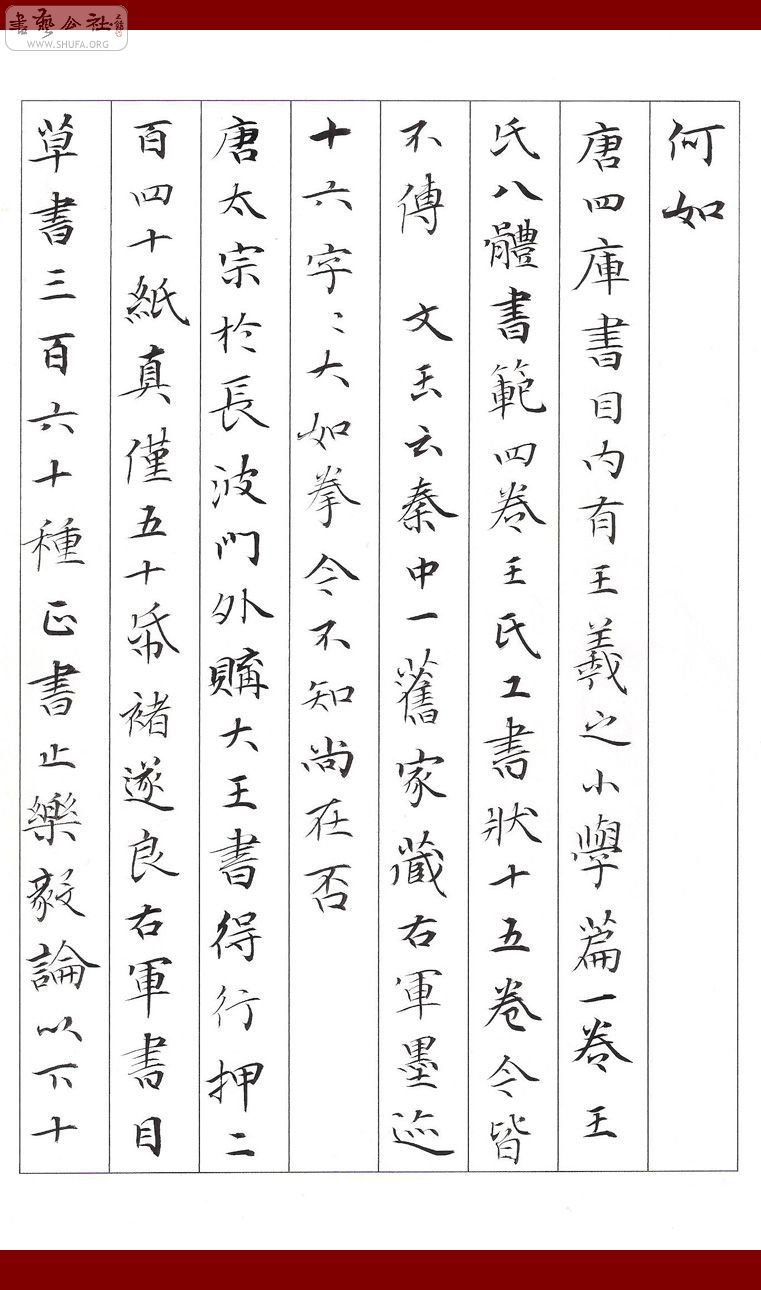 書藝公社
WWW.SHUFA.ORG
何如
唐四庫書目內有王羲之小學篇一卷王
氏八體書範四卷王氏工書狀十五卷今皆
不傳 文玉云秦中一舊家藏右軍墨迹
十六字〻大如拳今不知尚在否
唐太宗於長波門外購大王書得行押二
百四十紙真僅五十帋褚遂良右軍書目
草書三百六十種正書止樂毅論以下十